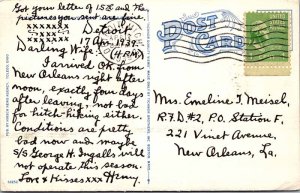 Got your letter of 15th and the
pictures you sent are fine.
xxxxxxx
xxxxxx
xxxxx
Detroit
17 Apr. 1939.
(4 P.M.)
Darling Wife:
I arrived OK from
New Orleans right after
noon, exactly four days
after leaving; not bad
for hitch-hiking either.
Conditions are pretty
bad now and maybe
S/S George H. Ingalls will
not operate this season.
Love & Kisses xxx Henry
POST
CARD
Mrs. Emeline T. Meisel,
R.F.D. #2, P.O. Station F,
221 Vinet Avenue,
New Orleans, La.